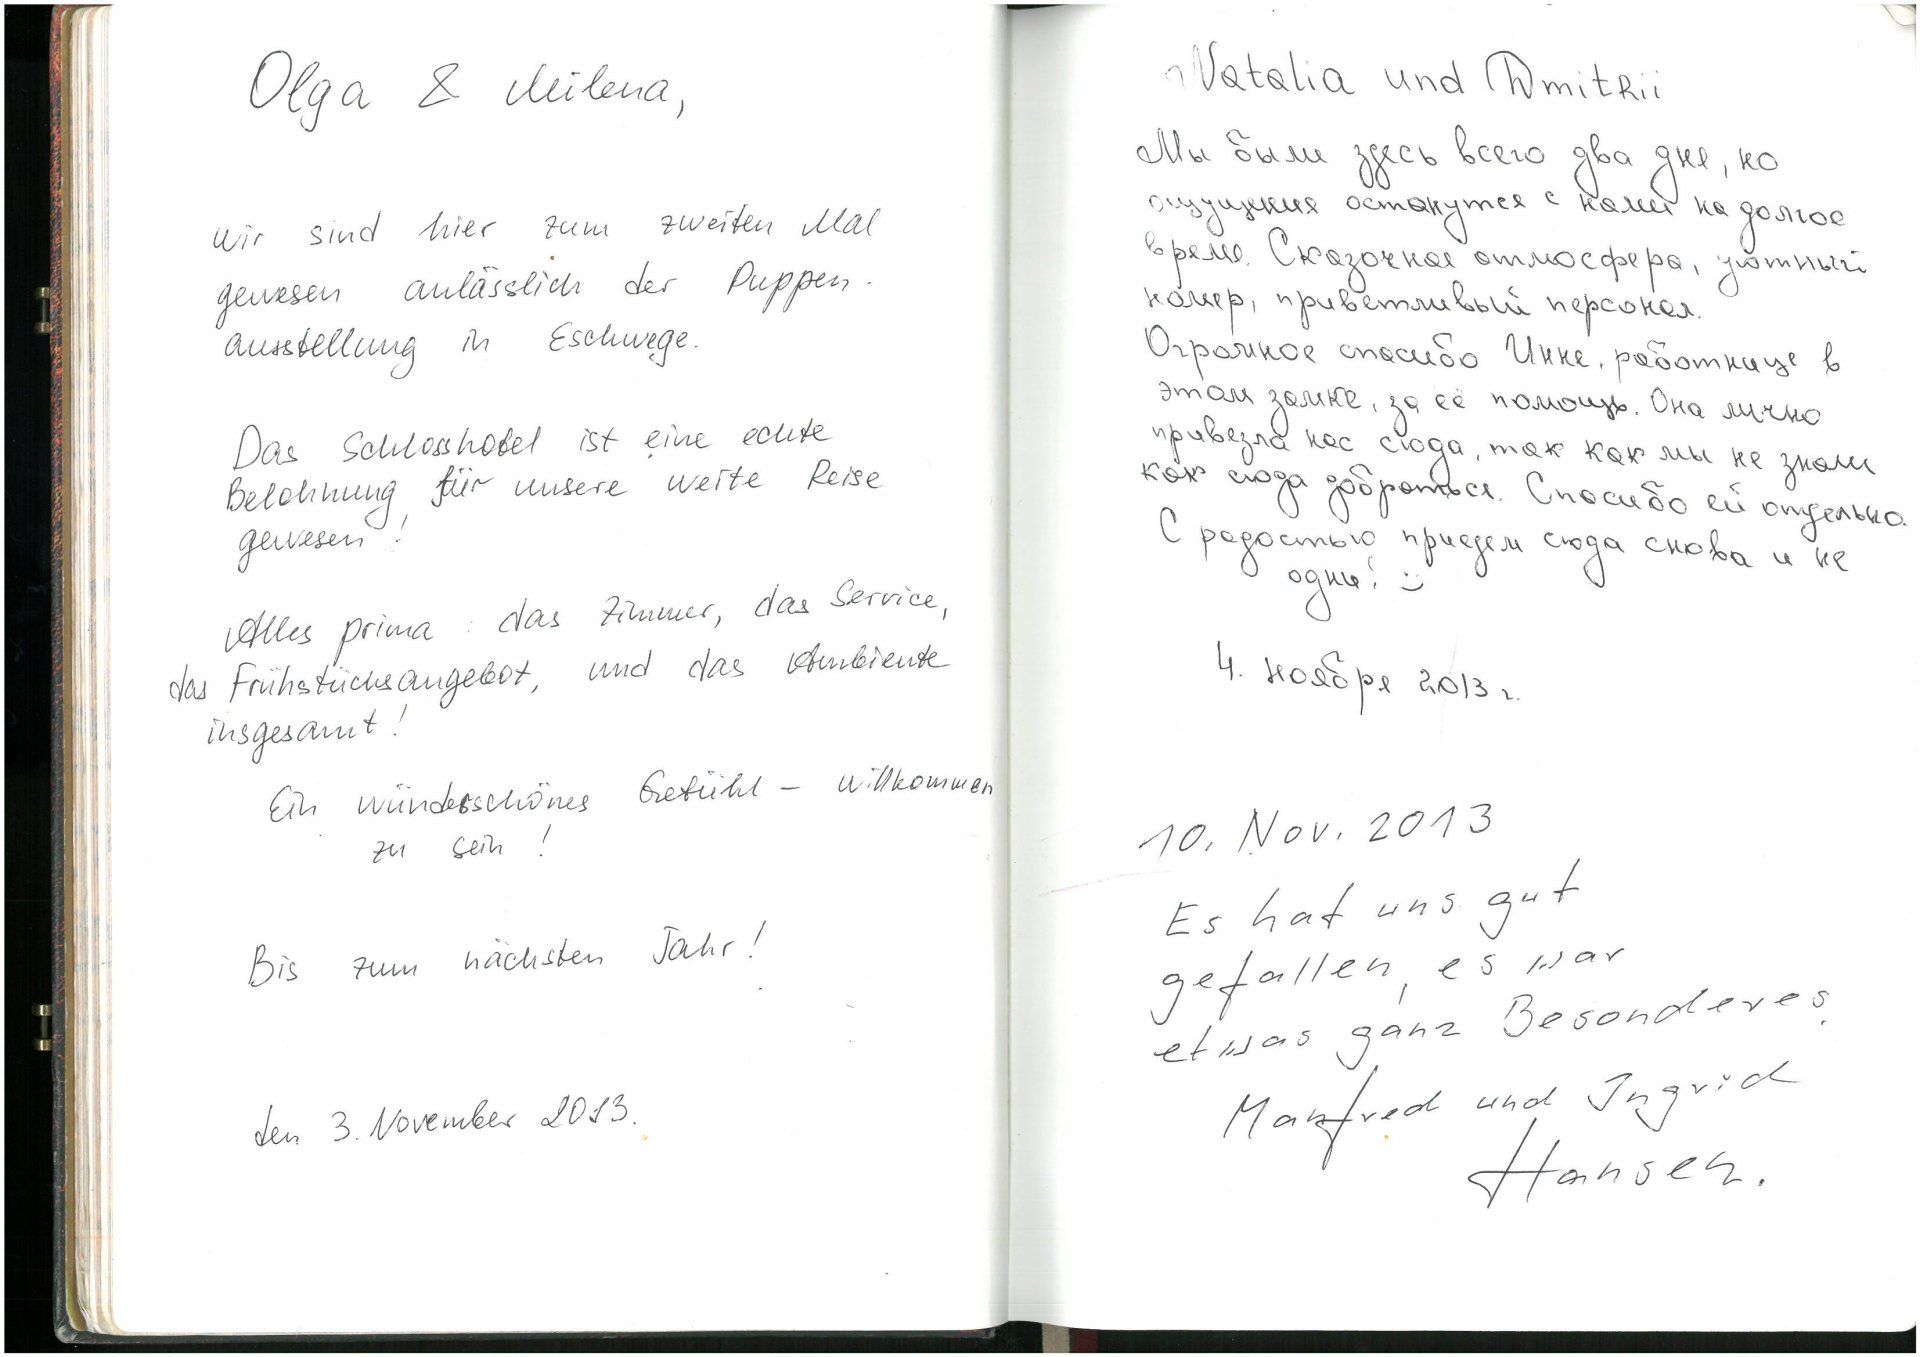 Olga & Milena,
wir sind hier zum zweiten Mal
gewesen anlässlich der Puppen-
ausstellung in Eschwege.
Das Schlosshotel ist eine echte
Belohnung für unsere weite Reise
gewesen!
Alles prima: das Zimmer, das Service,
das Frühstücksangebot, und das Ambiente
insgesamt!
Ein wünderschönes Gefühl – willkommen
zu sein!
Bis zum nächsten Jahr!
den 3. November 2013.
Natalia und Dmitrii
Мы были здесь всего два дня, но
ощущения останутся с нами на долгое
время. Сказочная атмосфера, уютный
номер, приветливый персонал.
Огромное спасибо Инне, работнице в
этом замке, за её помощь. Она лично
привезла нас сюда, так как мы не знали
как сюда добраться. Спасибо ей отдельно.
С радостью приедем сюда снова и не
одни! :)
4. ноября 2013 г.
10. Nov. 2013
Es hat uns gut
gefallen, es war
etwas ganz Besonderes.
Manfred und Ingrid
Hansen.